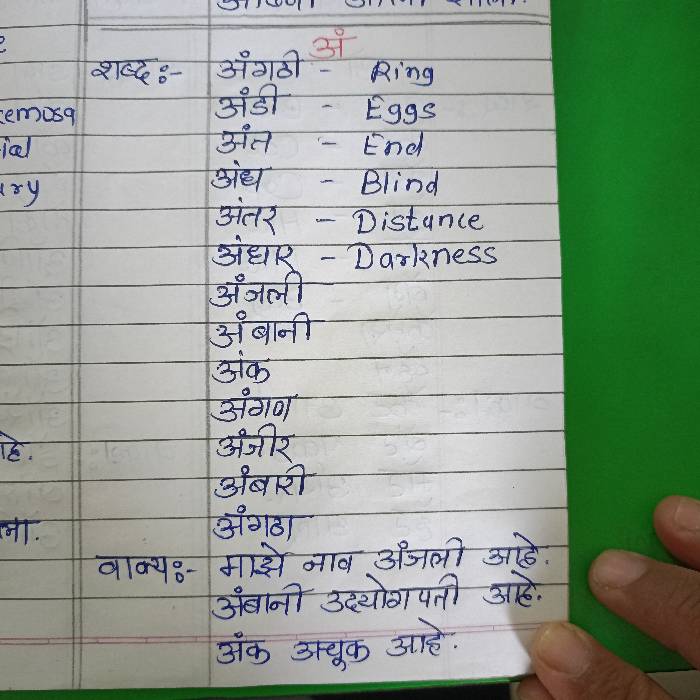 अं
शब्द:- अंगठी - Ring
अंडी - Eggs
अंत - End
अंध - Blind
अंतर - Distance
अंधार - Darkness
अंजली
अंबानी
अंक
अंगण
अंजीर
अंबारी
अंगठा
वाक्य:- माझे नाव अंजली आहे.
अंबानी उदयोगपती आहे.
अंक अचूक आहे.